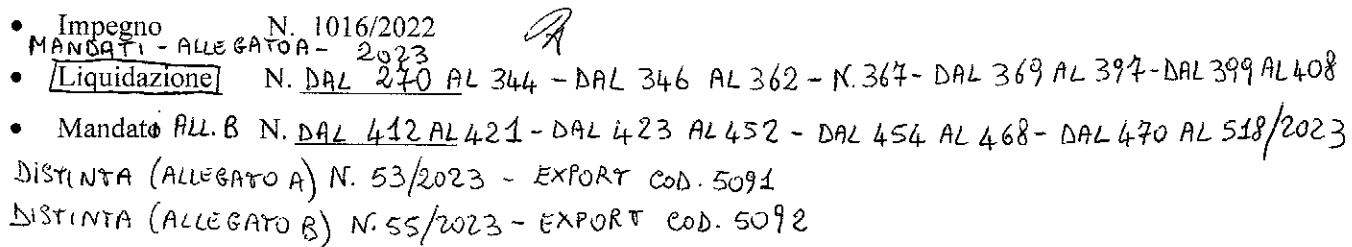 • Impegno N. 1016/2022
MANDATI - ALLEGATO A - 2023
• Liquidazione N. DAL 270 AL 344 - DAL 346 AL 362 - N. 367 - DAL 369 AL 397 - DAL 399 AL 408
• Mandato ALL. B N. DAL 412 AL 421 - DAL 423 AL 452 - DAL 454 AL 468 - DAL 470 AL 518/2023
DISTINTA (ALLEGATO A) N. 53/2023 - EXPORT COD. 5091
DISTINTA (ALLEGATO B) N. 55/2023 - EXPORT COD. 5092